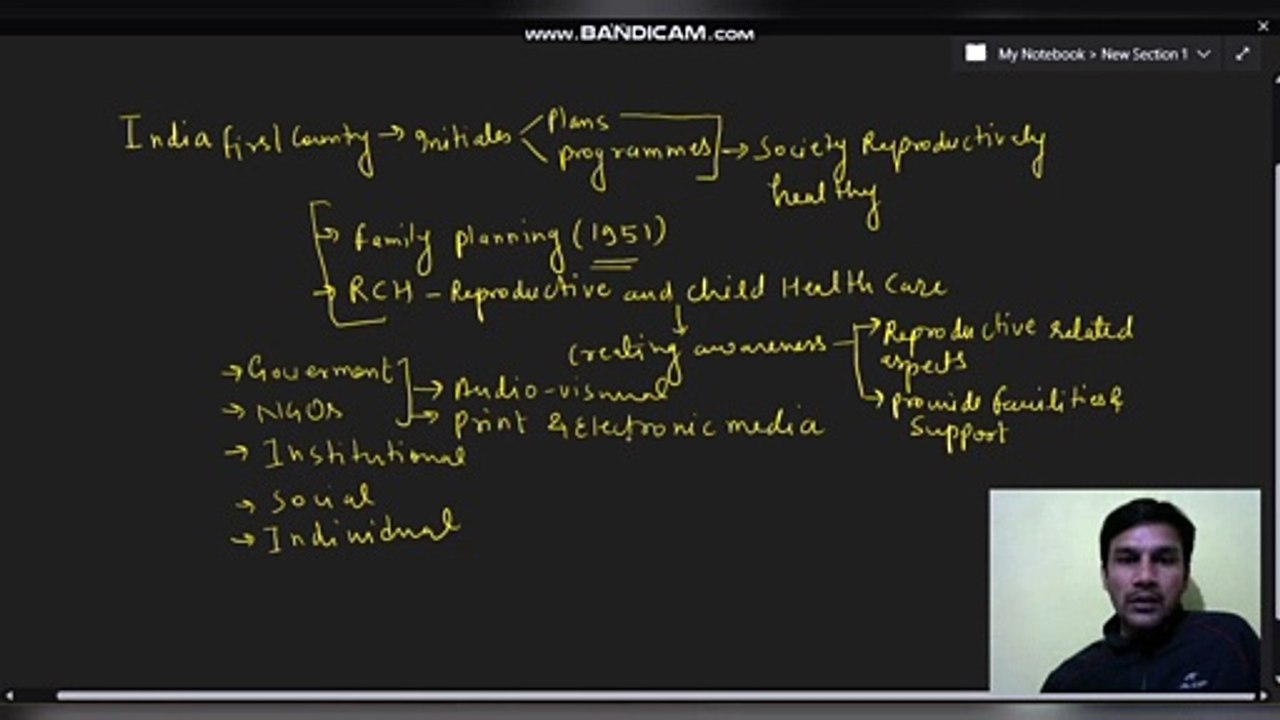 www.BANDICAM.com
My Notebook > New Section 1
India first Country → Initiates plans
programmes → Society Reproductively
healthy
→ family planning (1951)
→ RCH - Reproductive and child Health Care
creating awareness → Reproductive related
aspects
→ provide facilities &
Support
→ Goverment
→ Audio-visual
→ NGOs
→ print & Electronic media
→ Institutional
→ Social
→ Individual